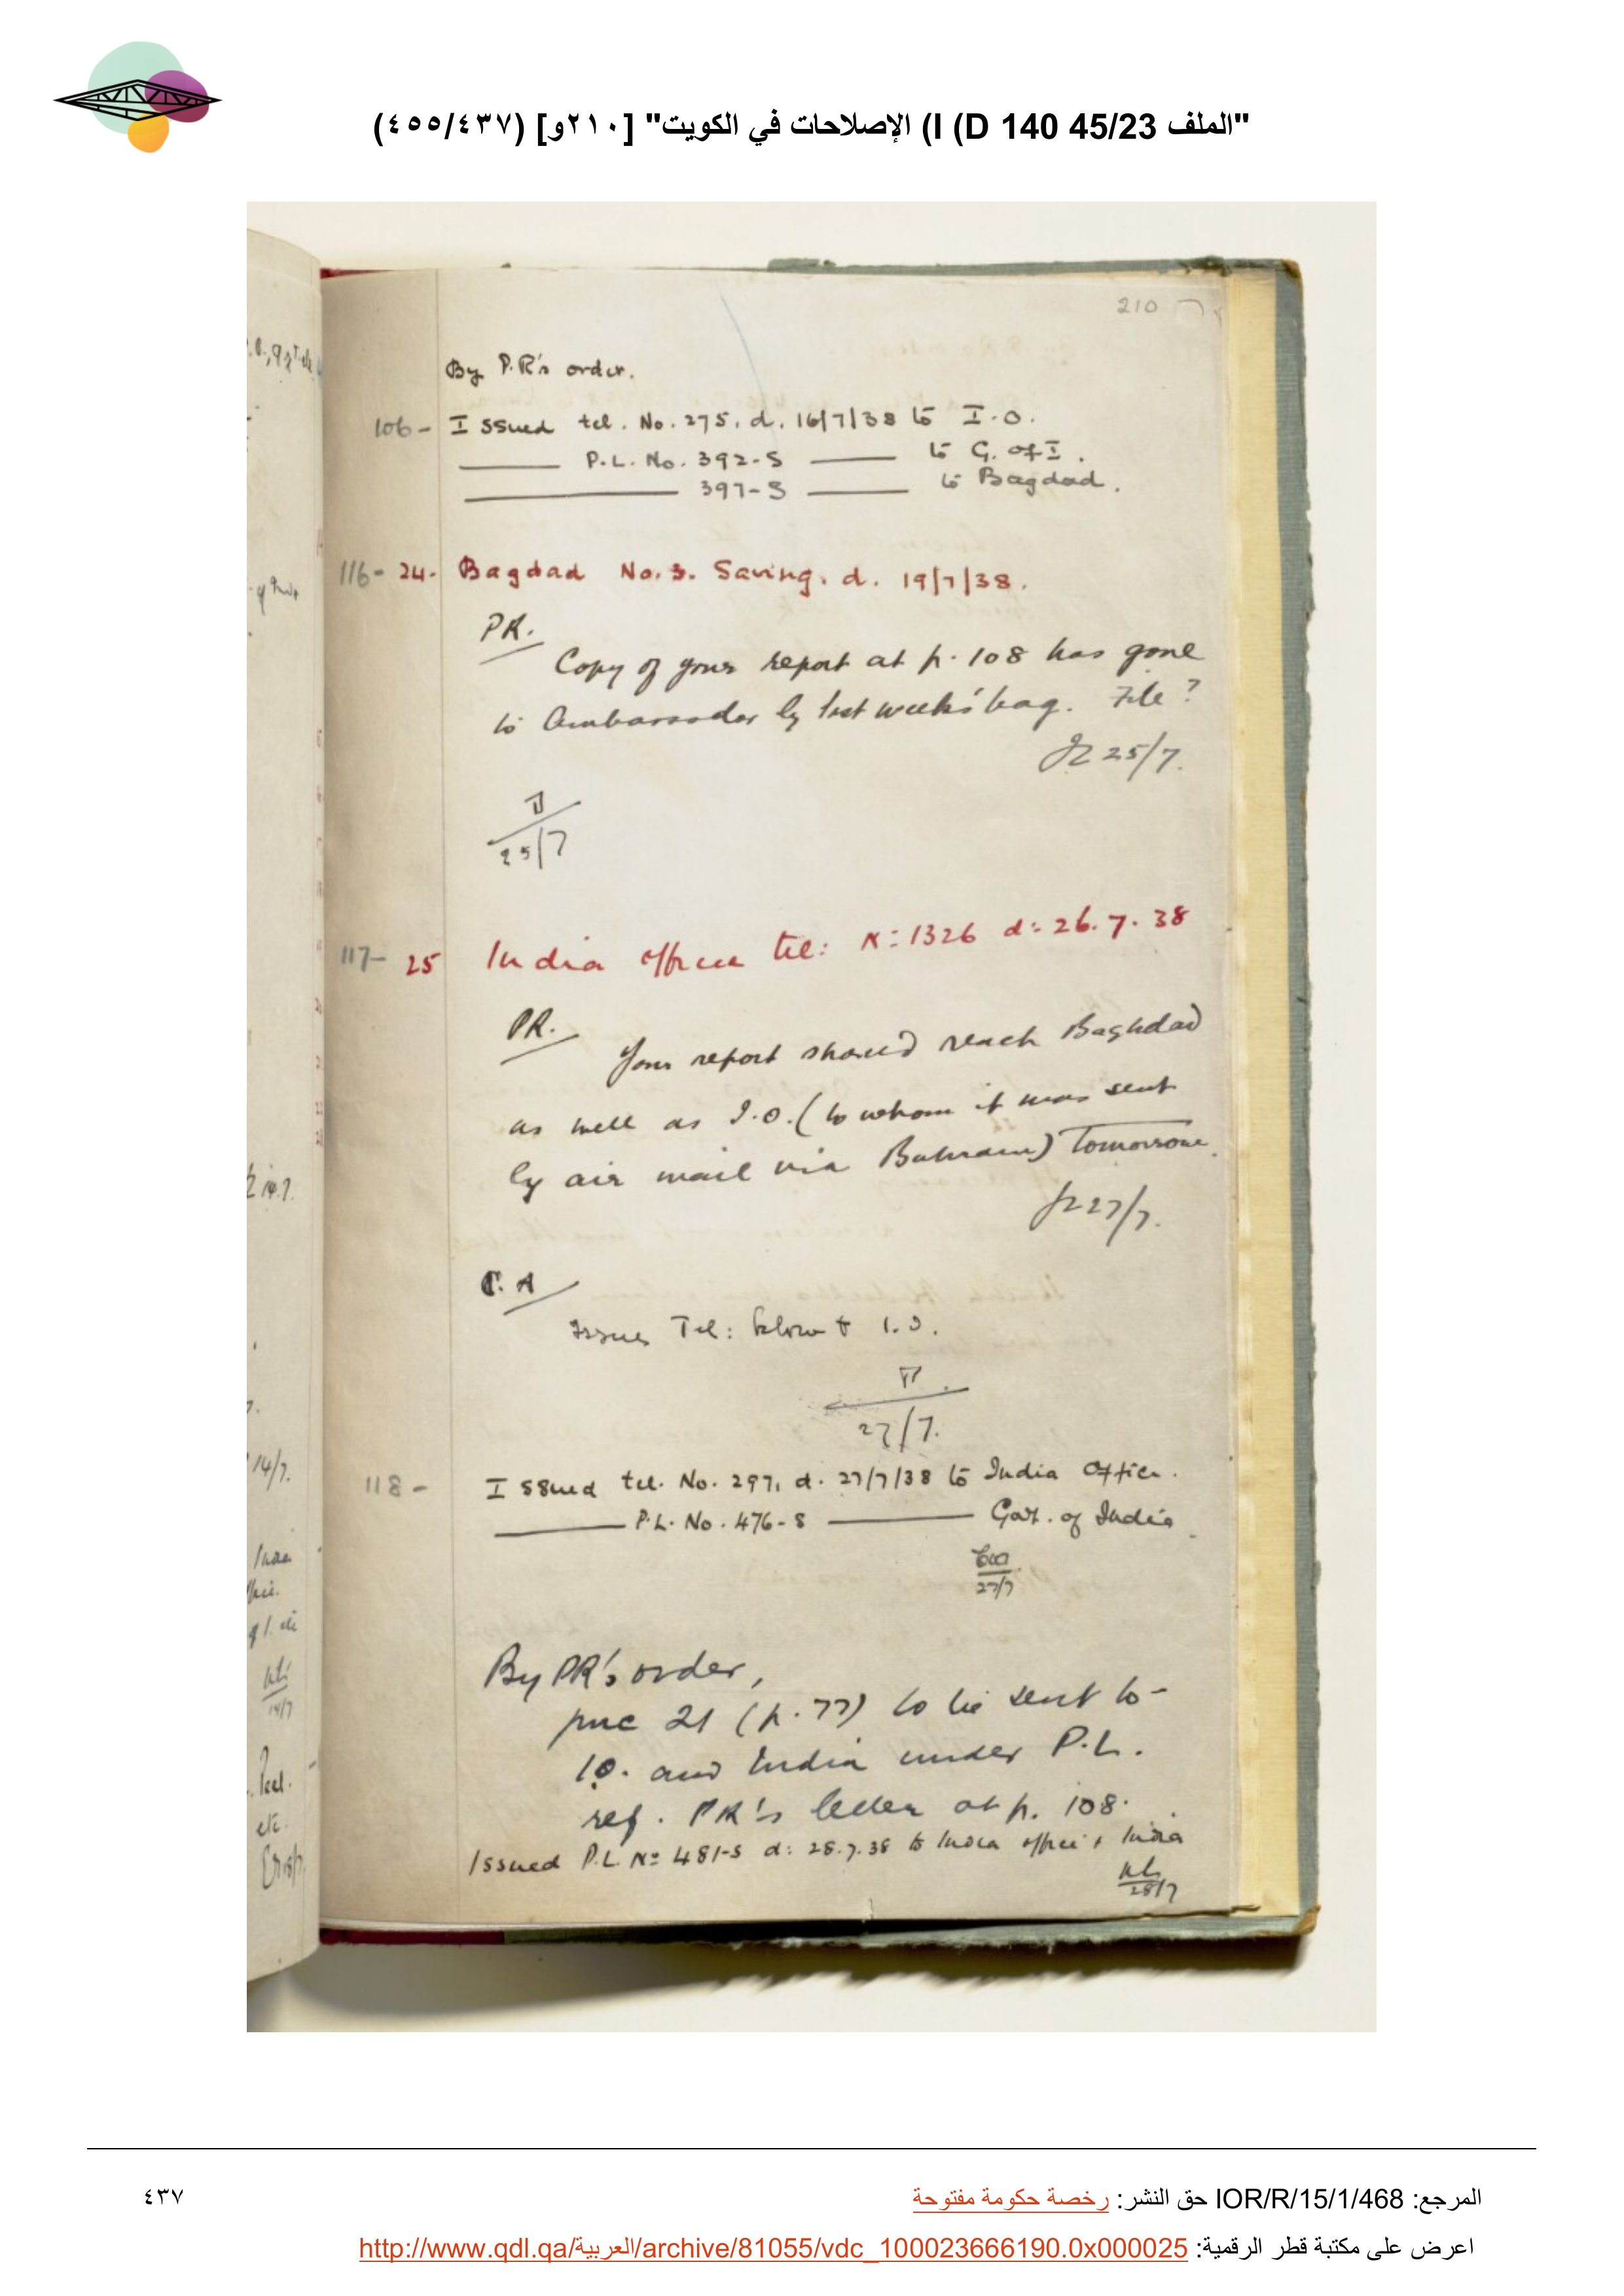 "الملف 45/23 I (D 140) الإصلاحات في الكويت" [٢١٠و] (٤٥٥/٤٣٧)
210
By P.R's order.
106- Issued tel. No. 275, d. 16/7/38 to I.O.
P.L. No. 392-S to G. of I.
397-S to Bagdad.
116- 24- Bagdad No. 3. Saving. d. 19/7/38.
PR.
Copy of your report at p. 108 has gone
to Ambassador by last week's bag. File?
25/7.
25/7
117- 25 India office tel: No 1326 d: 26.7.38
PR.
Your report should reach Baghdad
as well as I.O. (to whom it was sent
by air mail via Bahrain) Tomorrow.
27/7.
C.A
Issue Tel: below to I.O.
27/7.
118- Issued tel. No. 297, d. 27/7/38 to India Office.
P.L. No. 476-S Gov. of India.
27/7
By PR's order,
puc 21 (p. 77) to be sent to
I.O. and India under P.L.
ref. PR's letter at p. 108.
Issued P.L. No 481-S d: 28.7.38 to India office & India
28/7
المرجع: IOR/R/15/1/468 حق النشر: رخصة حكومة مفتوحة
٤٣٧
اعرض على مكتبة قطر الرقمية: http://www.qdl.qa/العربية/archive/81055/vdc_100023666190.0x000025